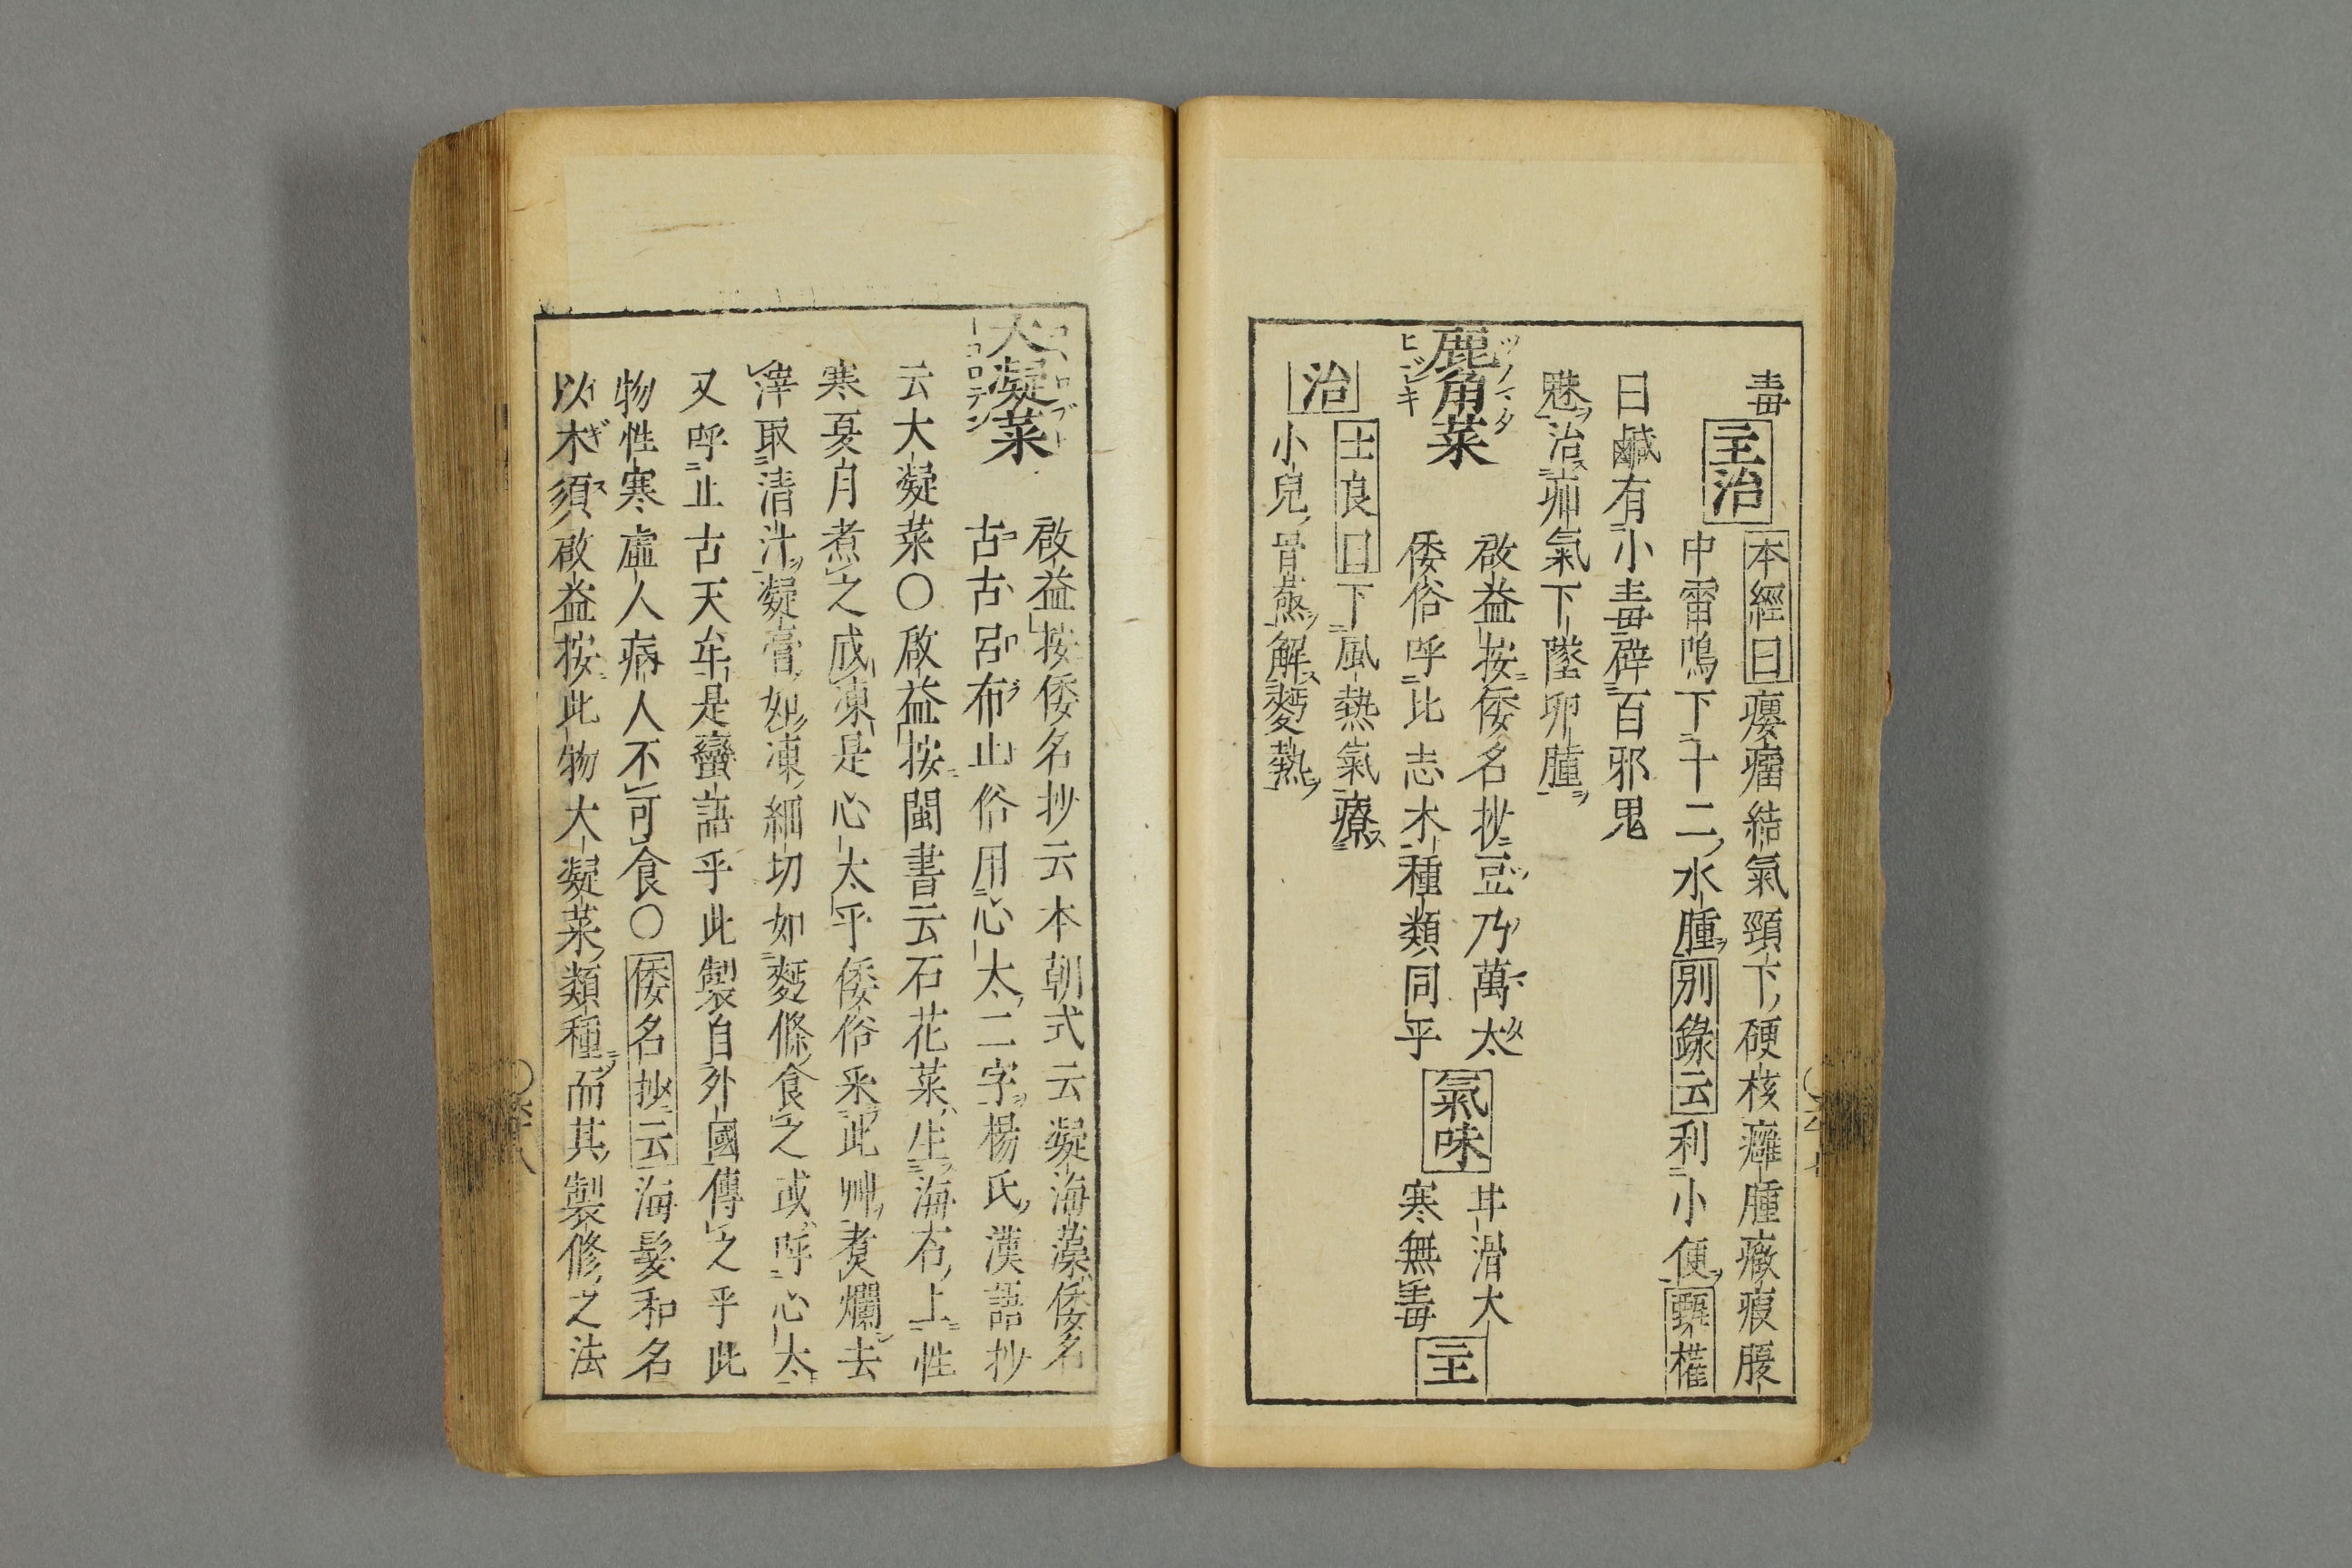 毒
主治
本經曰癭瘤結氣頸下硬核癰腫癥瘕腹
中雷鳴下十二水腫別錄云利小便甄權
曰鹹有小毒辟百邪鬼
魅治疝氣下墜卵腫
鹿角菜
ツノマタ
ヒジキ
啟益按倭名抄豆乃萬太
倭俗呼比志木種類同乎
氣味
甘滑大
寒無毒
主
治
士良曰下風熱氣療
小兒骨蒸解麪熱
大凝菜
コヽロブト
トコロテン
啟益按倭名抄云本朝式云凝海藻倭名
古古呂布止俗用心太二字楊氏漢語抄
云大凝菜〇啟益按閩書云石花菜生海石上性
寒夏月煮之成凍是心太乎倭俗采此艸煑爛去
滓取清汁凝膏如凍細切如麪條食之或呼心太
又呼止古天牟是蠻語乎此製自外國傳之乎此
物性寒虛人病人不可食〇倭名抄云海髮和名
以木須啟益按此物大凝菜類種而其製修之法